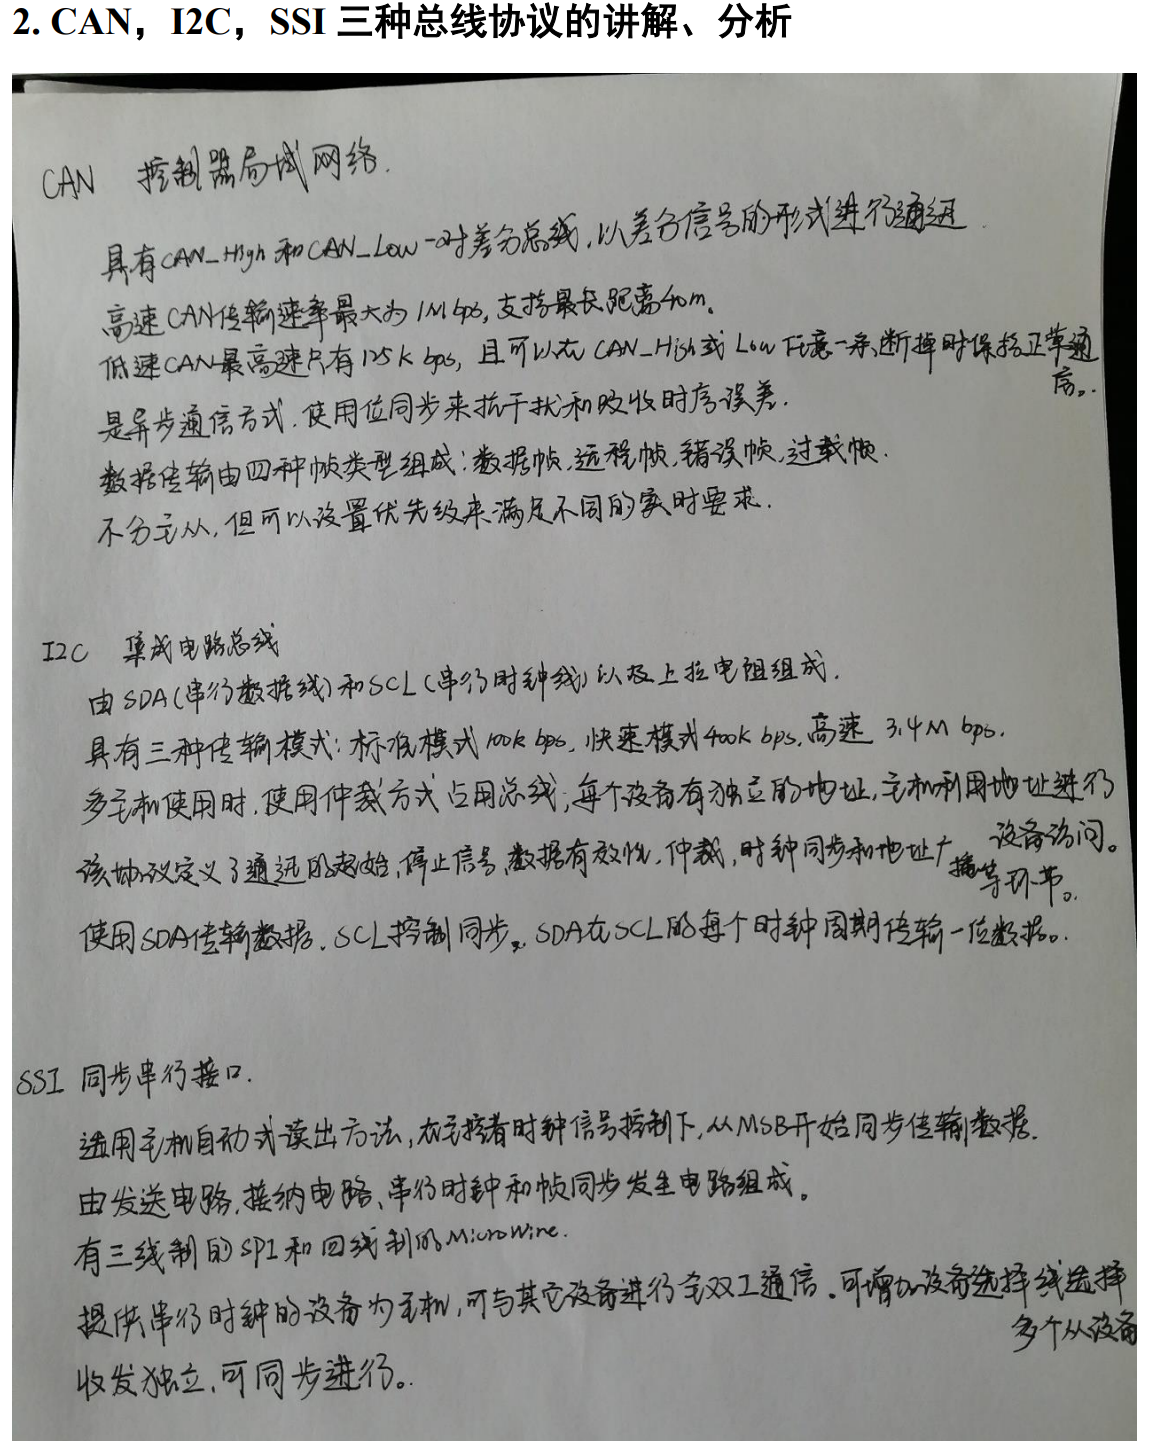 2. CAN，I2C，SSI 三种总线协议的讲解、分析
CAN 控制器局域网络.
具有CAN_High和CAN_Low一对差分总线,以差分信号的形式进行通迅.
高速CAN传输速率最大为1Mbps,支持最长距离40m。
低速CAN最高速只有125kbps,且可以在CAN_High或Low任意一条断掉时保持正常通
信。
是异步通信方式.使用位同步来抗干扰和吸收时序误差.
数据传输由四种帧类型组成:数据帧,远程帧,错误帧,过载帧.
不分主从,但可以设置优先级来满足不同的实时要求.
I2C 集成电路总线
由SDA(串行数据线)和SCL(串行时钟线)以及上拉电阻组成.
具有三种传输模式:标准模式100kbps,快速模式400kbps,高速 3.4Mbps.
多主机使用时,使用仲裁方式占用总线,每个设备有独立的地址,主机利用地址进行
设备访问。
该协议定义了通迅的起始,停止信号,数据有效性,仲裁,时钟同步和地址广
播等环节。
使用SDA传输数据.SCL控制同步。SDA在SCL的每个时钟周期传输一位数据。
SSI 同步串行接口.
适用主机自动式读出方法,在主控者时钟信号控制下,从MSB开始同步传输数据.
由发送电路,接纳电路、串行时钟和帧同步发生电路组成。
有三线制的SPI和四线制的Microwire.
提供串行时钟的设备为主机,可与其它设备进行全双工通信.可增加设备选择线选择
多个从设备
收发独立,可同步进行。